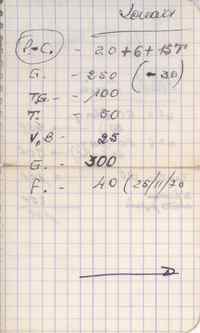 P-C. - 20 + 6 + 15T
G. - 250 (-30)
TG. - 100
T. - 50
V,B - 25
G. - 300
F. - 40 (25/11/70